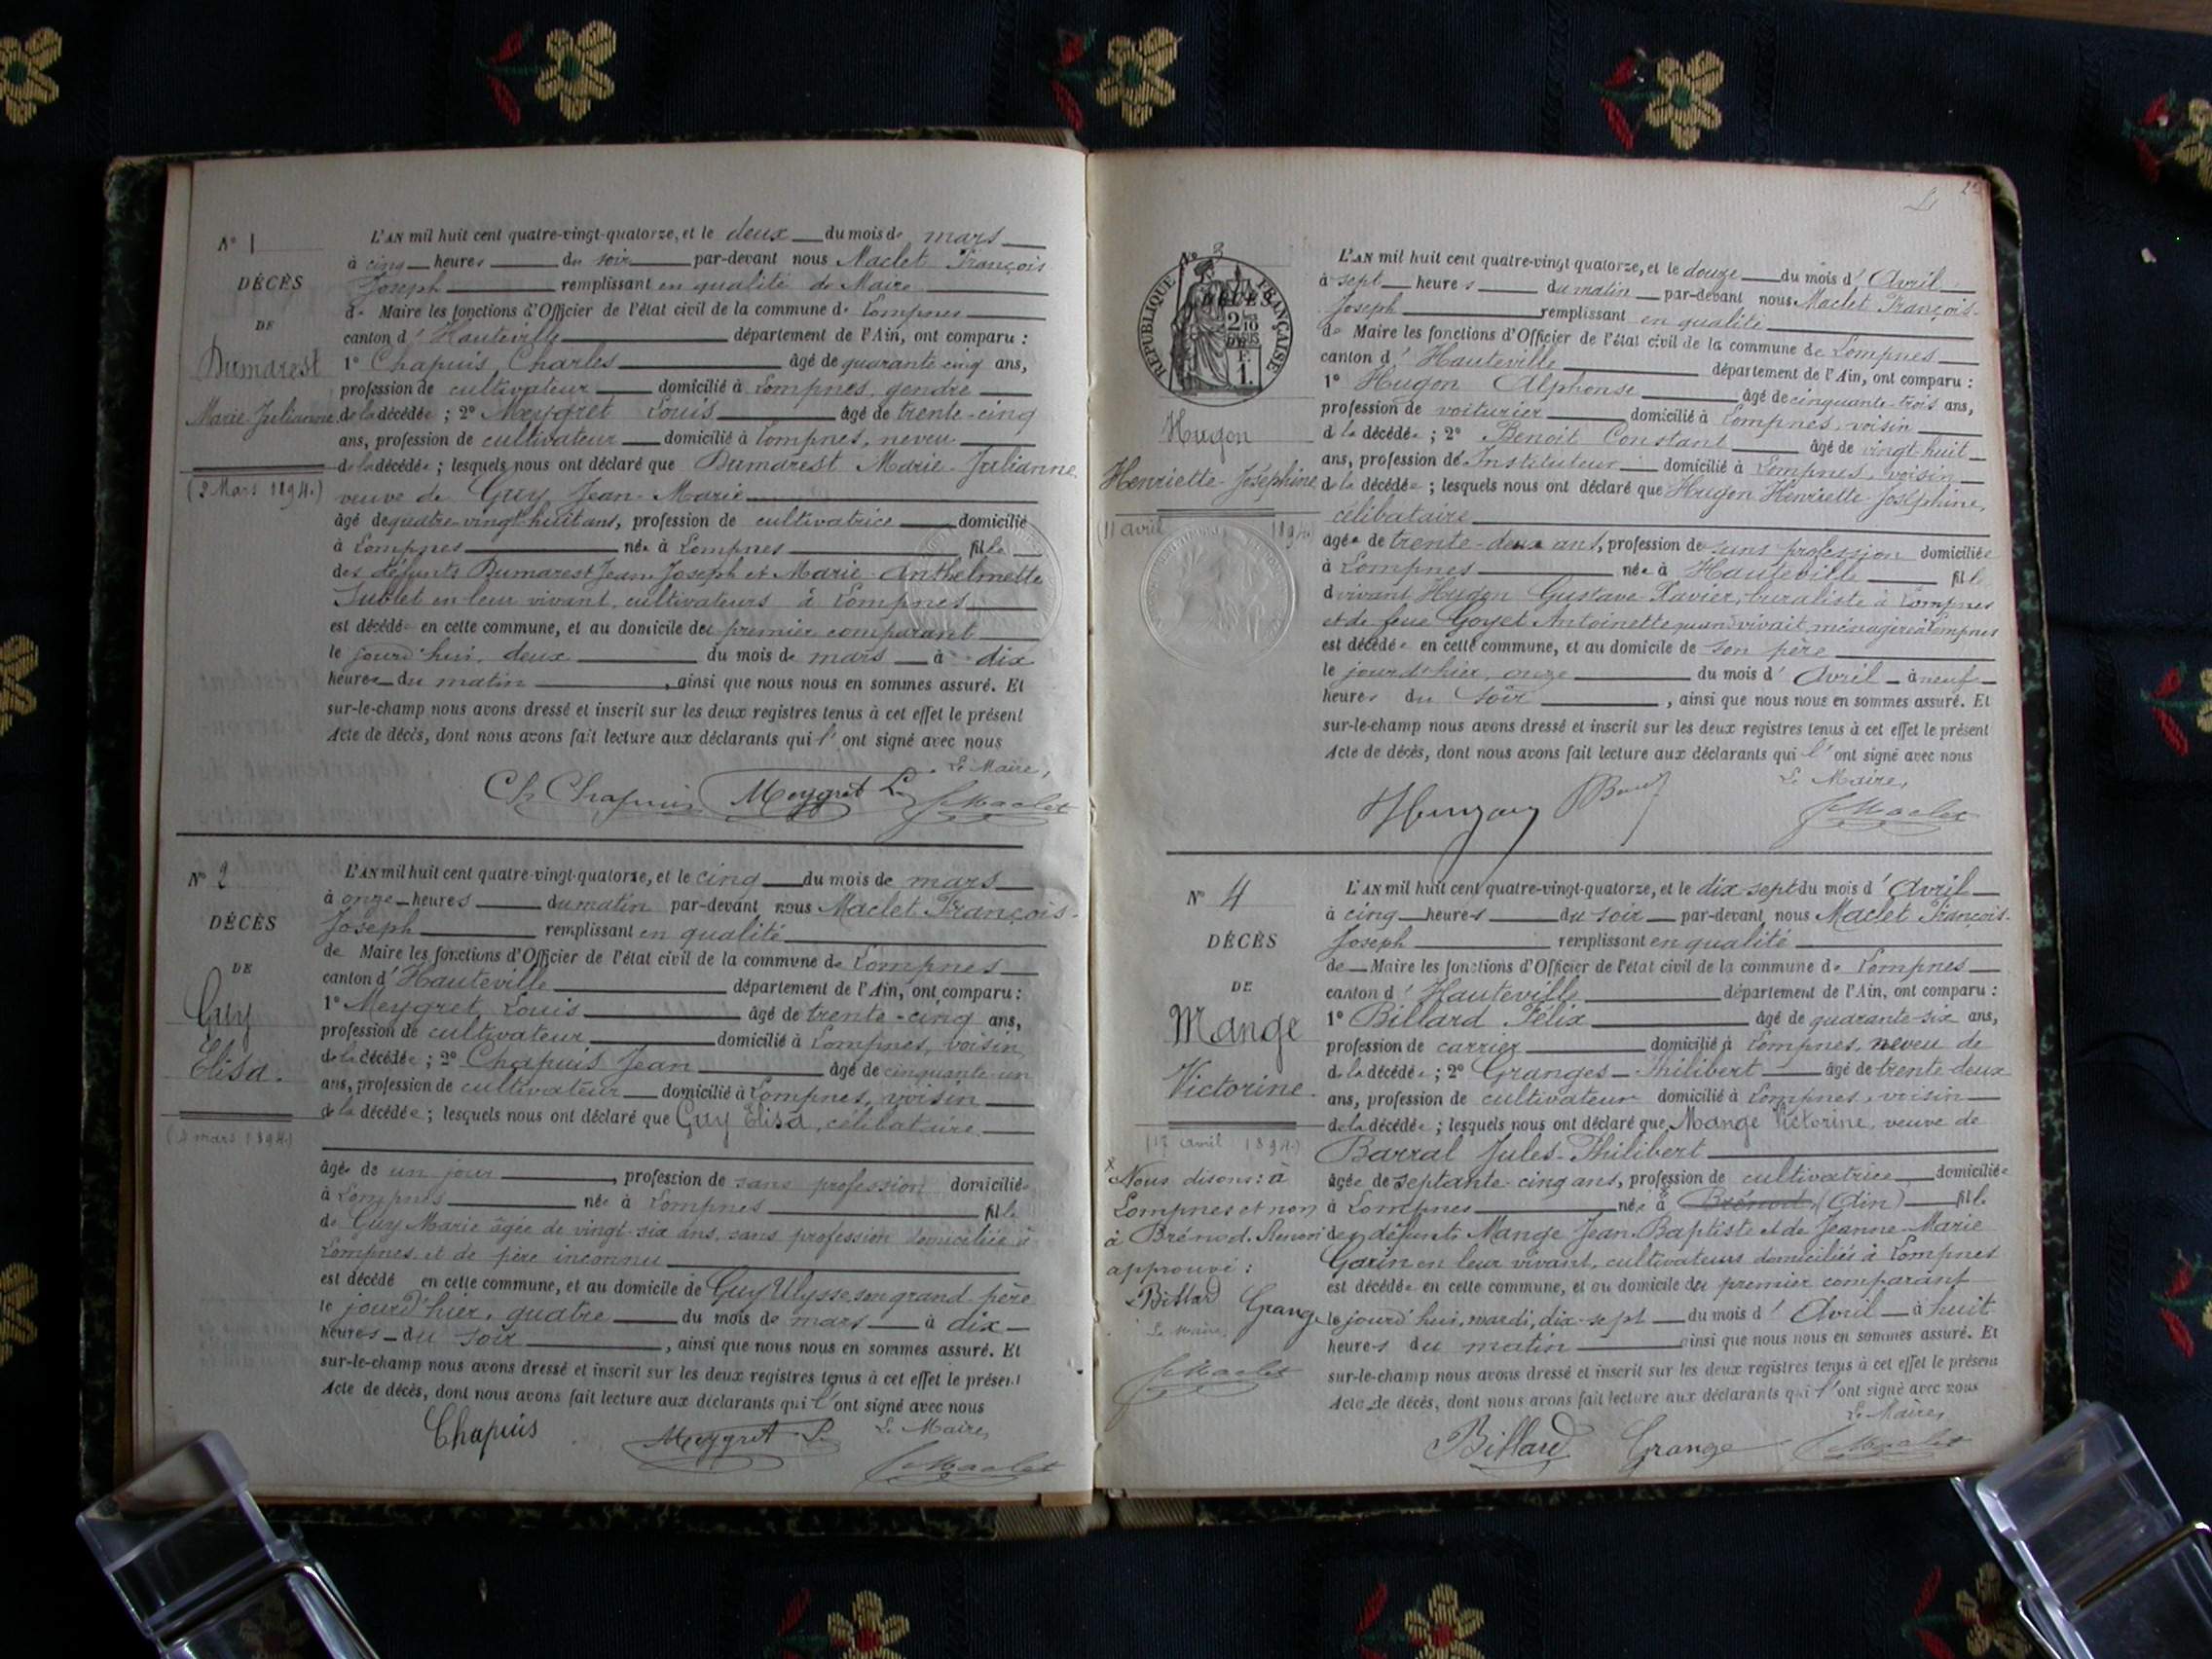 N° 1
DÉCÈS
DE
Dumarest
Marie-Julianne
(2 Mars 1894.)
L'AN mil huit cent quatre-vingt-quatorze, et le deux du mois de mars
à cinq heures du soir par-devant nous Maclet François
Joseph remplissant en qualité de Maire
de Maire les fonctions d'Officier de l'état civil de la commune de Lompnes
canton d'Hauteville département de l'Ain, ont comparu :
1° Chapuis Charles âgé de quarante cinq ans,
profession de cultivateur domicilié à Lompnes, gendre
de la décédée ; 2° Meygret Louis âgé de trente-cinq
ans, profession de cultivateur domicilié à Lompnes, neveu
de la décédée ; lesquels nous ont déclaré que Dumarest Marie-Julianne
veuve de Guy Jean-Marie
âgé de quatre-vingt huit ans, profession de cultivatrice domicilié
à Lompnes née à Lompnes fille
des défunts Dumarest Jean-Joseph et Marie-Anthelmette
Sublet en leur vivant, cultivateurs à Lompnes
est décédée en cette commune, et au domicile du premier comparant
le jourd'hui, deux du mois de mars à dix
heures du matin, ainsi que nous nous en sommes assuré. Et
sur-le-champ nous avons dressé et inscrit sur les deux registres tenus à cet effet le présent
Acte de décès, dont nous avons fait lecture aux déclarants qui l'ont signé avec nous
Le Maire,
Ch Chapuis Meygret L. Maclet
N° 2
DÉCÈS
DE
Guy
Elisa.
(4 mars 1894.)
L'AN mil huit cent quatre-vingt-quatorze, et le cinq du mois de mars
à onze heures du matin par-devant nous Maclet François-
Joseph remplissant en qualité
de Maire les fonctions d'Officier de l'état civil de la commune de Lompnes
canton d'Hauteville département de l'Ain, ont comparu :
1° Meygret Louis âgé de trente-cinq ans,
profession de cultivateur domicilié à Lompnes, voisin
de la décédée ; 2° Chapuis Jean âgé de cinquante-un
ans, profession de cultivateur domicilié à Lompnes, voisin
de la décédée ; lesquels nous ont déclaré que Guy Elisa, célibataire
âgée de un jour, profession de sans profession domiciliée
à Lompnes née à Lompnes fille
de Guy Marie âgée de vingt-six ans, sans profession domiciliée à
Lompnes et de père inconnu
est décédé en cette commune, et au domicile de Guy Ulysse son grand père
le jourd'hier, quatre du mois de mars à dix
heures du soir, ainsi que nous nous en sommes assuré. Et
sur-le-champ nous avons dressé et inscrit sur les deux registres tenus à cet effet le présent
Acte de décès, dont nous avons fait lecture aux déclarants qui l'ont signé avec nous
Le Maire,
Chapuis Meygret L. Maclet
2
N° 3
RÉPUBLIQUE FRANÇAISE
DÉCÈS
DE
Hugon
Henriette-Joséphine
(11 avril 1894)
L'AN mil huit cent quatre-vingt quatorze, et le douze du mois d'Avril
à sept heures du matin par-devant nous Maclet François-
Joseph remplissant en qualité
de Maire les fonctions d'Officier de l'état civil de la commune de Lompnes
canton d'Hauteville département de l'Ain, ont comparu :
1° Hugon Alphonse âgé de cinquante-trois ans,
profession de voiturier domicilié à Lompnes, voisin
de la décédée ; 2° Benoit Constant âgé de vingt-huit
ans, profession de Instituteur domicilié à Lompnes, voisin
de la décédée ; lesquels nous ont déclaré que Hugon Henriette-Joséphine,
célibataire
âgée de trente-deux ans, profession de sans profession domiciliée
à Lompnes née à Hauteville fille
d vivant Hugon Gustave-Xavier, buraliste à Lompnes
et de feue Goyet Antoinette quand vivait, ménagère à Lompnes
est décédée en cette commune, et au domicile de son père
le jourd'hier, onze du mois d'Avril à neuf
heures du soir, ainsi que nous nous en sommes assuré. Et
sur-le-champ nous avons dressé et inscrit sur les deux registres tenus à cet effet le présent
Acte de décès, dont nous avons fait lecture aux déclarants qui l'ont signé avec nous
Le Maire,
Hugon Maclet
N° 4
DÉCÈS
DE
Mange
Victorine
(17 avril 1894.)
x Nous disons : à
Lompnes et non
à Brénod. Renvoi
approuvé :
Billard Grange
Le Maire,
Maclet
L'AN mil huit cent quatre-vingt-quatorze, et le dix sept du mois d'Avril
à cinq heures du soir par-devant nous Maclet François-
Joseph remplissant en qualité
de Maire les fonctions d'Officier de l'état civil de la commune de Lompnes
canton d'Hauteville département de l'Ain, ont comparu :
1° Billard Félix âgé de quarante-six ans,
profession de carrier domicilié à Lompnes, neveu de
de la décédée ; 2° Granges Philibert âgé de trente-deux
ans, profession de cultivateur domicilié à Lompnes, voisin
de la décédée ; lesquels nous ont déclaré que Mange Victorine, veuve de
Barral Jules-Philibert
âgée de septante-cinq ans, profession de cultivatrice domiciliée
à Lompnes née à Brénod, (Ain) fille
des défunts Mange Jean-Baptiste et de Jeanne-Marie
Garin en leur vivant, cultivateurs domiciliés à Lompnes
est décédée en cette commune, et au domicile du premier comparant
le jourd'hui, mardi, dix-sept du mois d'Avril à huit
heures du matin ainsi que nous nous en sommes assuré. Et
sur-le-champ nous avons dressé et inscrit sur les deux registres tenus à cet effet le présent
Acte de décès, dont nous avons fait lecture aux déclarants qui l'ont signé avec nous
Le Maire,
Billard Grange Maclet